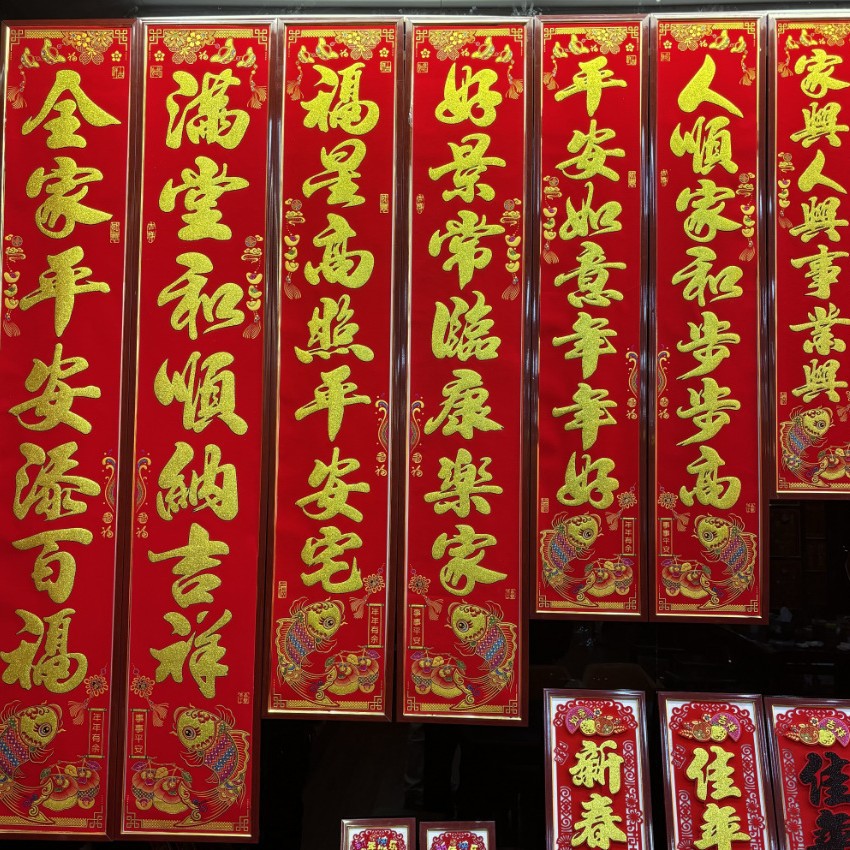 全家平安添百福
滿堂和順納吉祥
福星高照平安宅
好景常臨康樂家
平安如意年年好
人順家和步步高
家興人興事業興
年年有餘
事事平安
年年有餘
事事平安
年年有餘
事事平安
新春
佳年
佳年